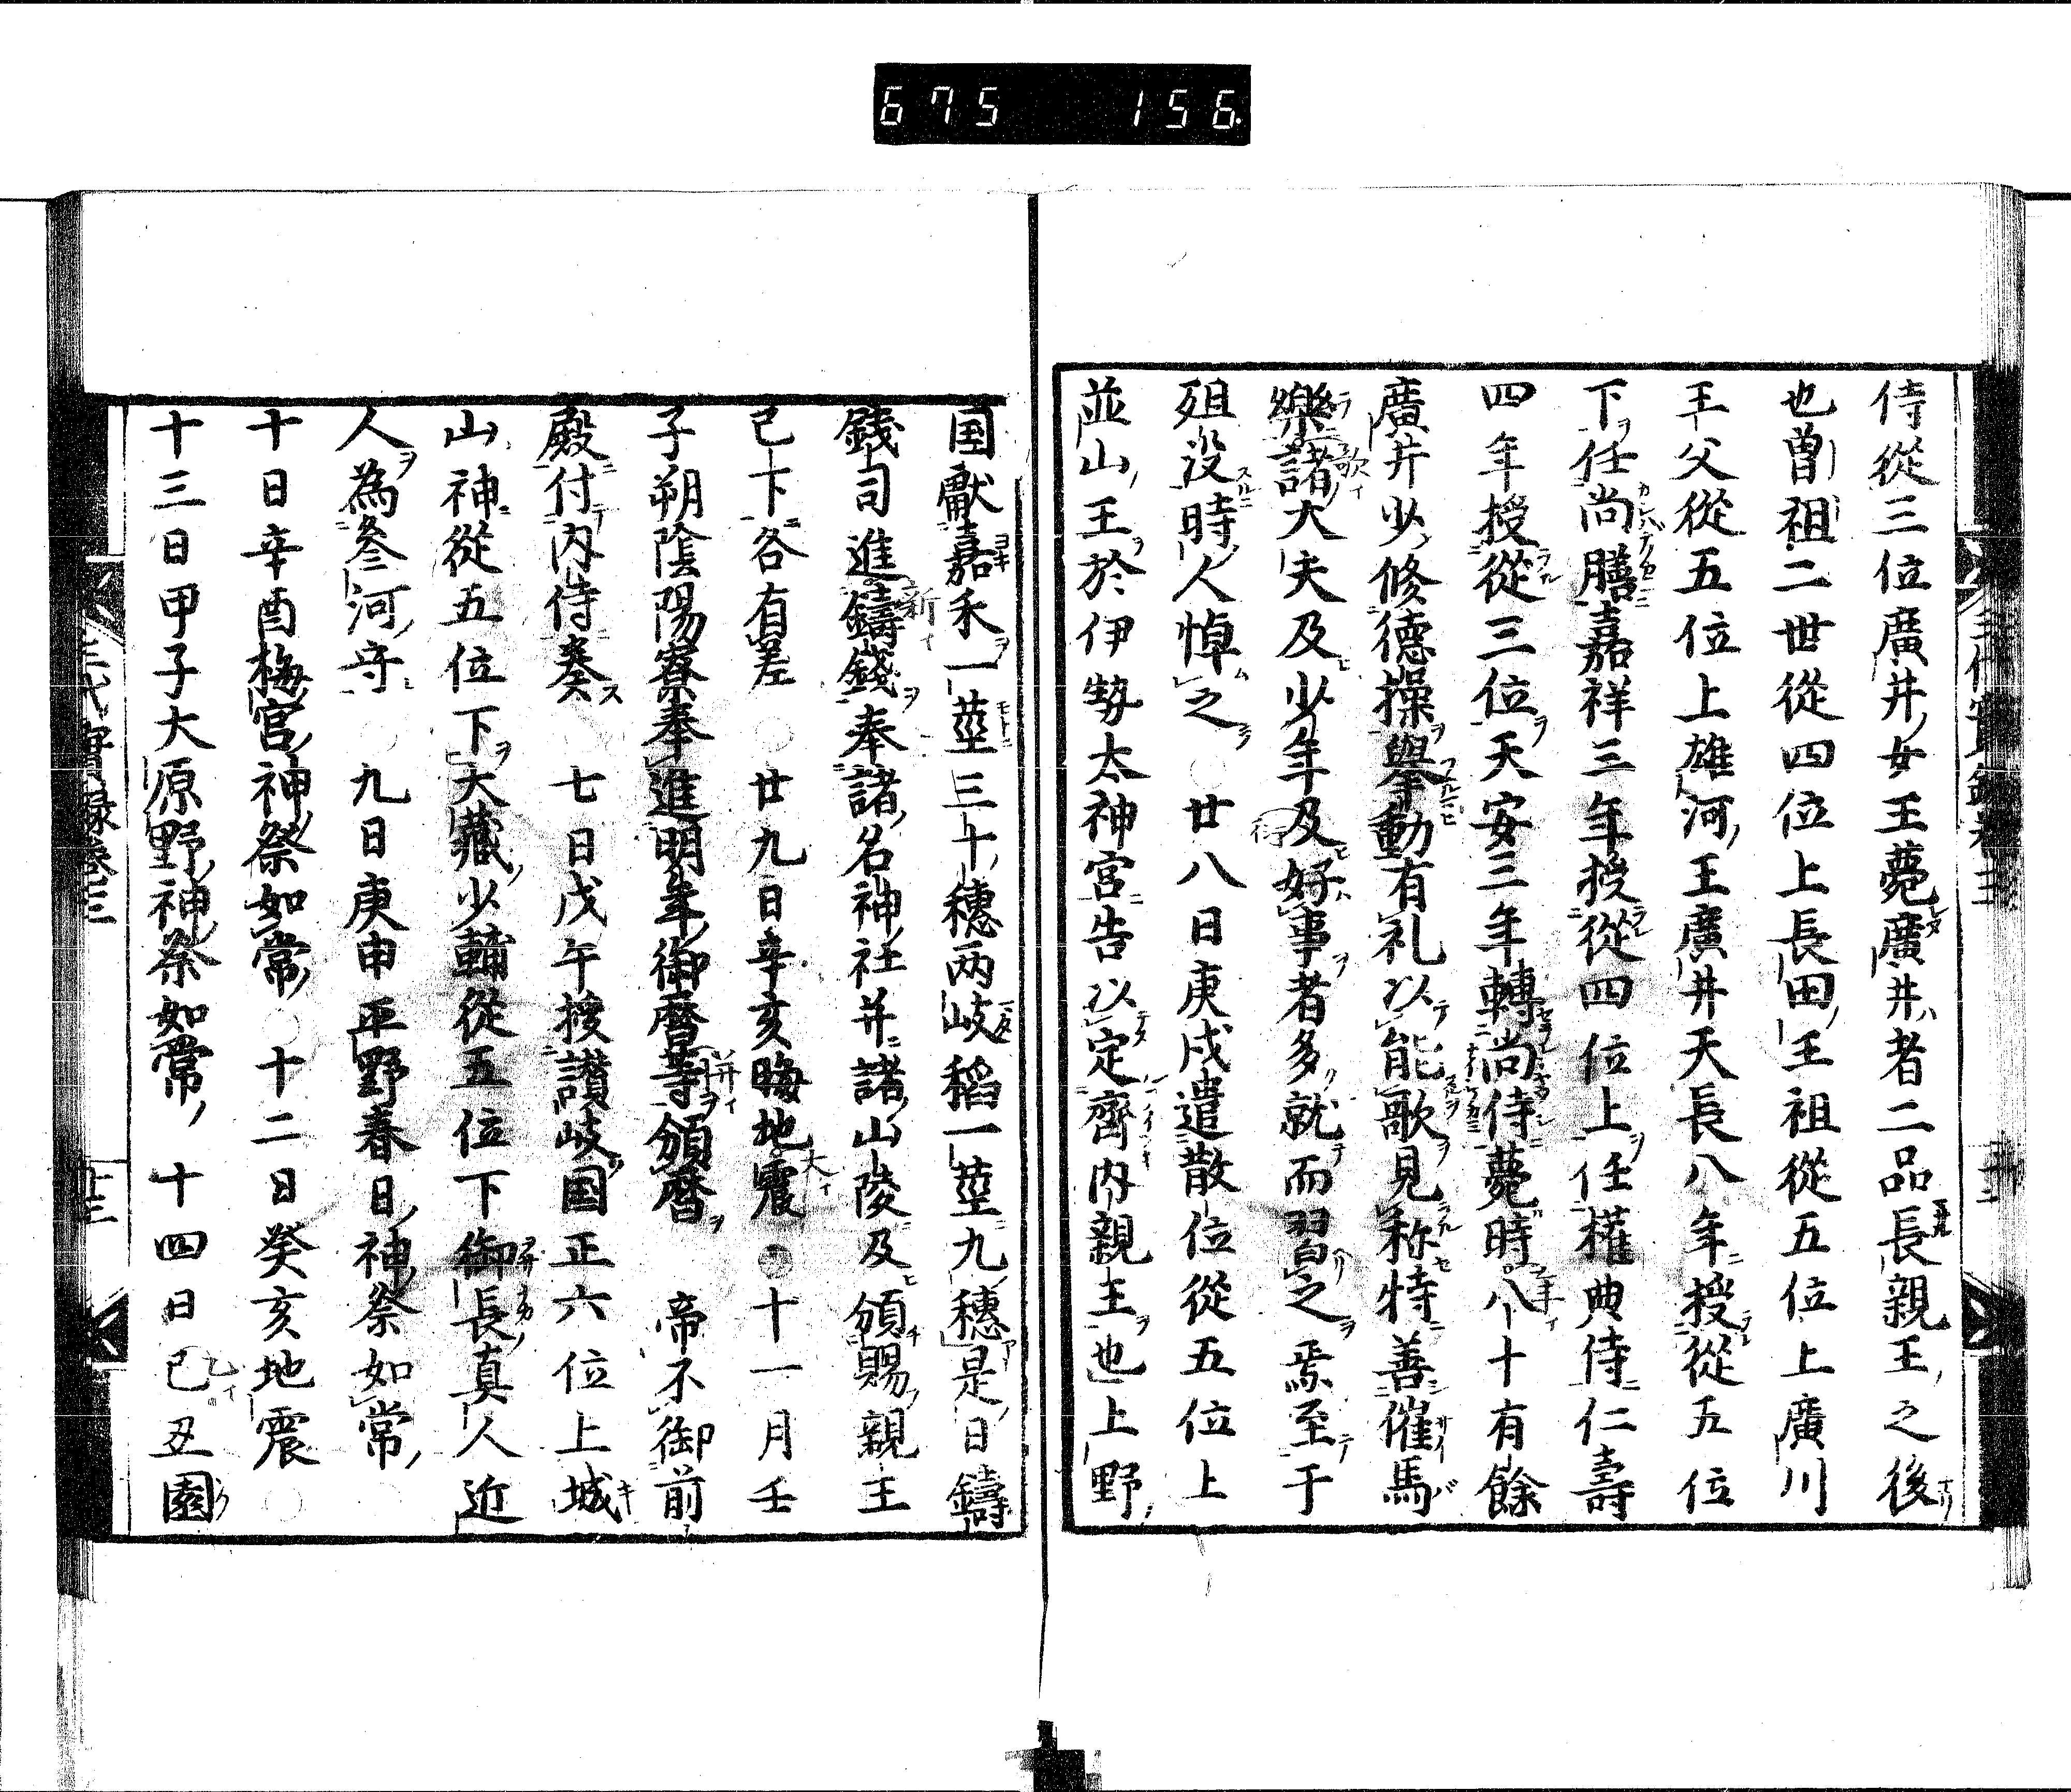 675 156
侍從三位廣井女王薨廣井者二品長親王之後
也曽祖二世從四位上長田王祖從五位上廣川
王父從五位上雄河王廣井天長八年授從五位
下任尚膳嘉祥三年授從四位上任權典侍仁壽
四年授從三位天安三年轉尚侍薨時八十有餘
廣井少修德操擧動有礼以能歌見称特善催馬
樂諸大夫及少年及好事者多就而習之焉至于
殂没時人悼之廿八日庚戌遣散位從五位上
並山王於伊勢太神宮告以定齊内親王也上野
国獻嘉禾一莖三十穗两岐稻一莖九穗是日鑄
錢司進鑄錢奉諸名神社并諸山陵及頒賜親王
已下各有差廿九日辛亥晦地震十一月壬
子朔陰陽寮奉進明年御暦等頒暦帝不御前
殿付内侍奏七日戊午授讃岐国正六位上城
山神從五位下大藏少輔從五位下御長真人近
人為叄河守九日庚申平野春日神祭如常
十日辛酉梅宮神祭如常十二日癸亥地震
十三日甲子大原野神祭如常十四日己丑園
三代實録卷三 十三